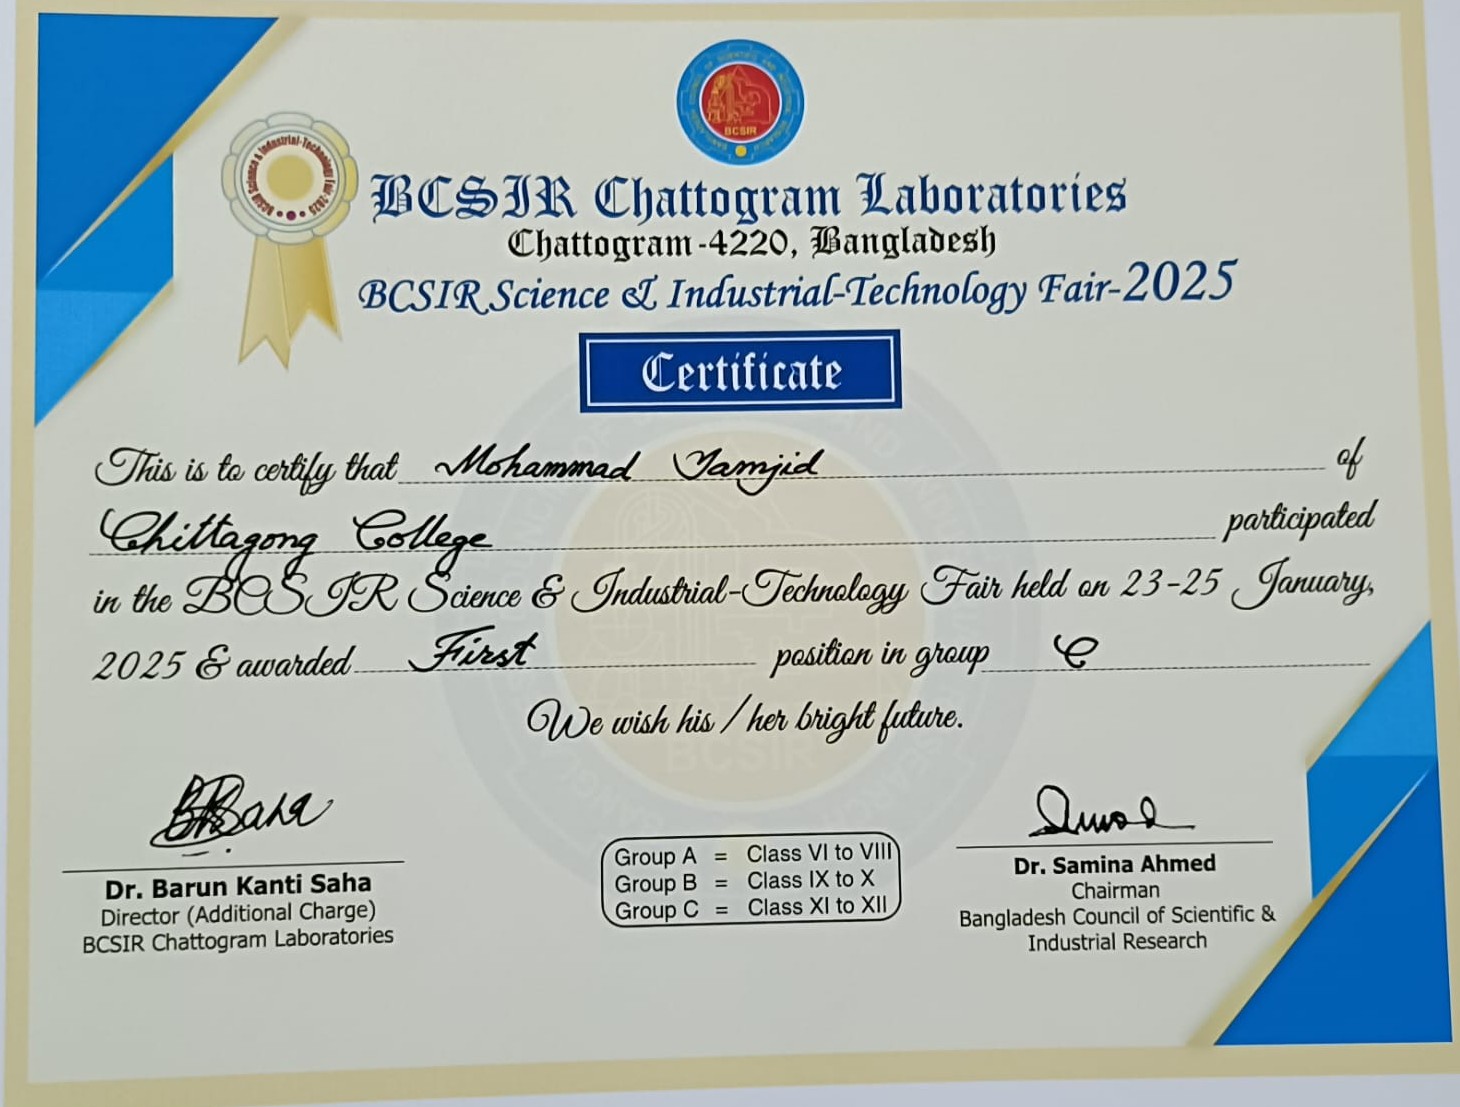 BCSIR
BCSIR Science & Industrial-Technology Fair-2025
BCSIR Chattogram Laboratories
Chattogram-4220, Bangladesh
BCSIR Science & Industrial-Technology Fair-2025
Certificate
This is to certify that Mohammad Tamjid of
Chittagong College participated
in the BCSIR Science & Industrial-Technology Fair held on 23-25 January,
2025 & awarded First position in group C
We wish his / her bright future.
Dr. Barun Kanti Saha
Director (Additional Charge)
BCSIR Chattogram Laboratories
Group A = Class VI to VIII
Group B = Class IX to X
Group C = Class XI to XII
Dr. Samina Ahmed
Chairman
Bangladesh Council of Scientific &
Industrial Research